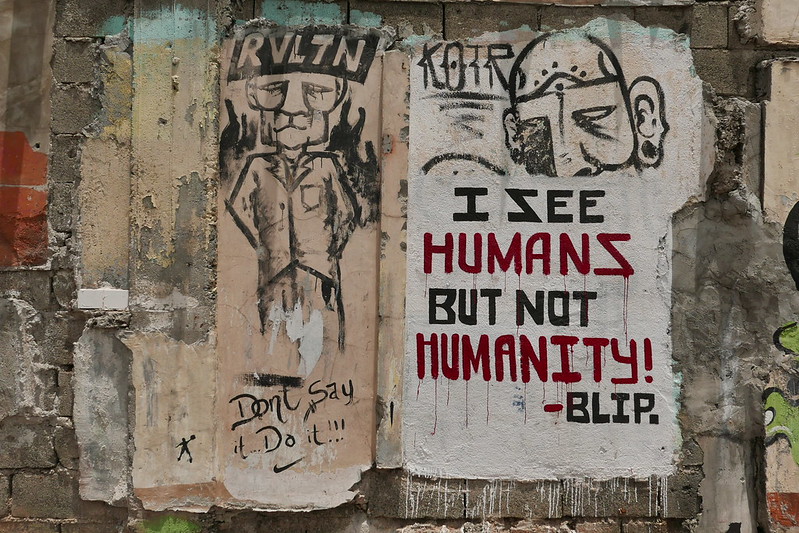 RVLTN
Dont Say
it... Do it!!!
KOTR
I SEE
HUMANS
BUT NOT
HUMANITY!
-BLIP.